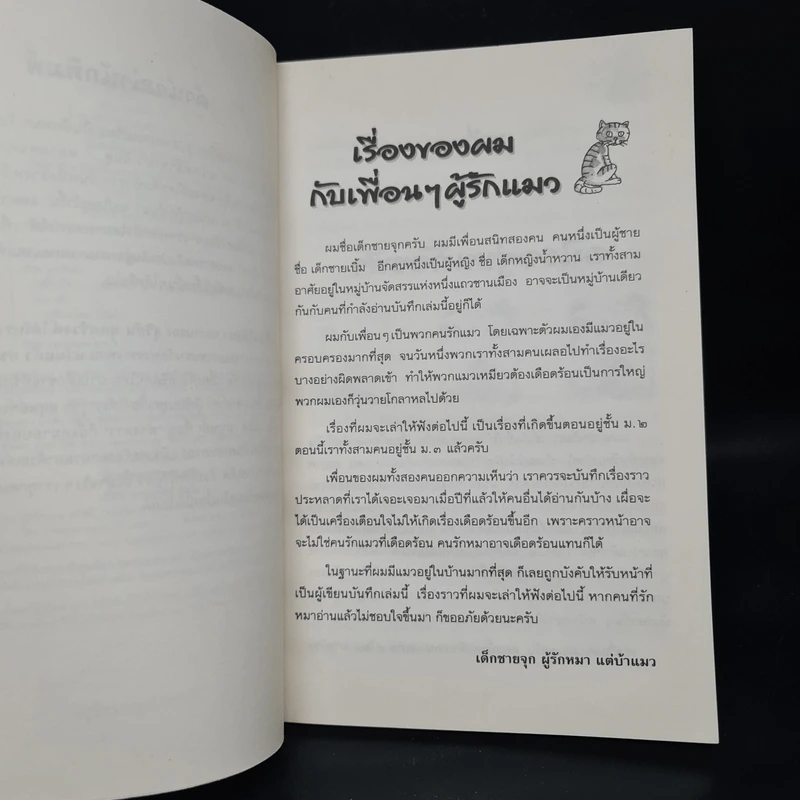 เรื่องของผม
กับเพื่อนๆ ผู้รักแมว
ผมชื่อเด็กชายจุกครับ ผมมีเพื่อนสนิทสองคน คนหนึ่งเป็นผู้ชาย
ชื่อ เด็กชายเบิ้ม อีกคนหนึ่งเป็นผู้หญิง ชื่อ เด็กหญิงน้ำหวาน เราทั้งสาม
อาศัยอยู่ในหมู่บ้านจัดสรรแห่งหนึ่งแถวชานเมือง อาจจะเป็นหมู่บ้านเดียว
กันกับคนที่กำลังอ่านบันทึกเล่มนี้อยู่ก็ได้
ผมกับเพื่อนๆ เป็นพวกคนรักแมว โดยเฉพาะตัวผมเองมีแมวอยู่ใน
ครอบครองมากที่สุด จนวันหนึ่งพวกเราทั้งสามคนเผลอไปทำเรื่องอะไร
บางอย่างผิดพลาดเข้า ทำให้พวกแมวเหมียวต้องเดือดร้อนเป็นการใหญ่
พวกผมเองก็วุ่นวายโกลาหลไปด้วย
เรื่องที่ผมจะเล่าให้ฟังต่อไปนี้ เป็นเรื่องที่เกิดขึ้นตอนอยู่ชั้น ม.๒
ตอนนี้เราทั้งสามคนอยู่ชั้น ม.๓ แล้วครับ
เพื่อนของผมทั้งสองคนออกความเห็นว่า เราควรจะบันทึกเรื่องราว
ประหลาดที่เราได้เจอะเจอมาเมื่อปีที่แล้วให้คนอื่นได้อ่านกันบ้าง เผื่อจะ
ได้เป็นเครื่องเตือนใจไม่ให้เกิดเรื่องเดือดร้อนขึ้นอีก เพราะคราวหน้าอาจ
จะไม่ใช่คนรักแมวที่เดือดร้อน คนรักหมาอาจเดือดร้อนแทนก็ได้
ในฐานะที่ผมมีแมวอยู่ในบ้านมากที่สุด ก็เลยถูกบังคับให้รับหน้าที่
เป็นผู้เขียนบันทึกเล่มนี้ เรื่องราวที่ผมจะเล่าให้ฟังต่อไปนี้ หากคนที่รัก
หมาอ่านแล้วไม่ชอบใจขึ้นมา ก็ขออภัยด้วยนะครับ
เด็กชายจุก ผู้รักหมา แต่บ้าแมว